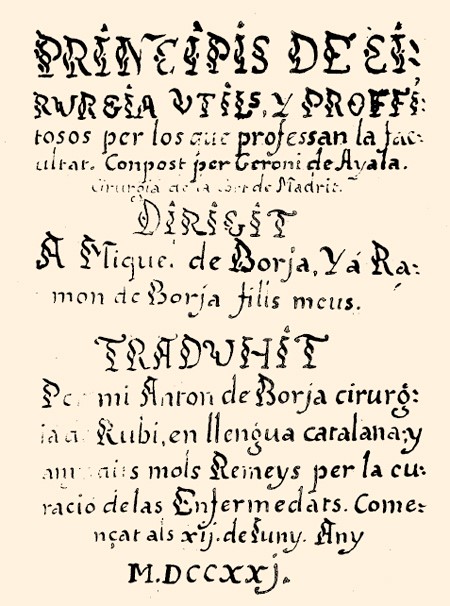 PRINCIPIS DE CI:
RURGIA UTILS, Y PROFFI:
tosos per los que professan la fac:
ultat. Conpost per Geroni de Ayala.
Cirurgia de la Cort de Madrit.
DIRIGIT
A Miquel de Borja, Y á Ra:
mon de Borja filis meus.
TRADUHIT
Per mi Anton de Borja cirurg:
ia de Rubi, en llengua catalana; y
mols Remeys per la cu:
racio de las Enfermedats. Come:
nçat als xij. de Iuny. Any
M.DCCXXj.